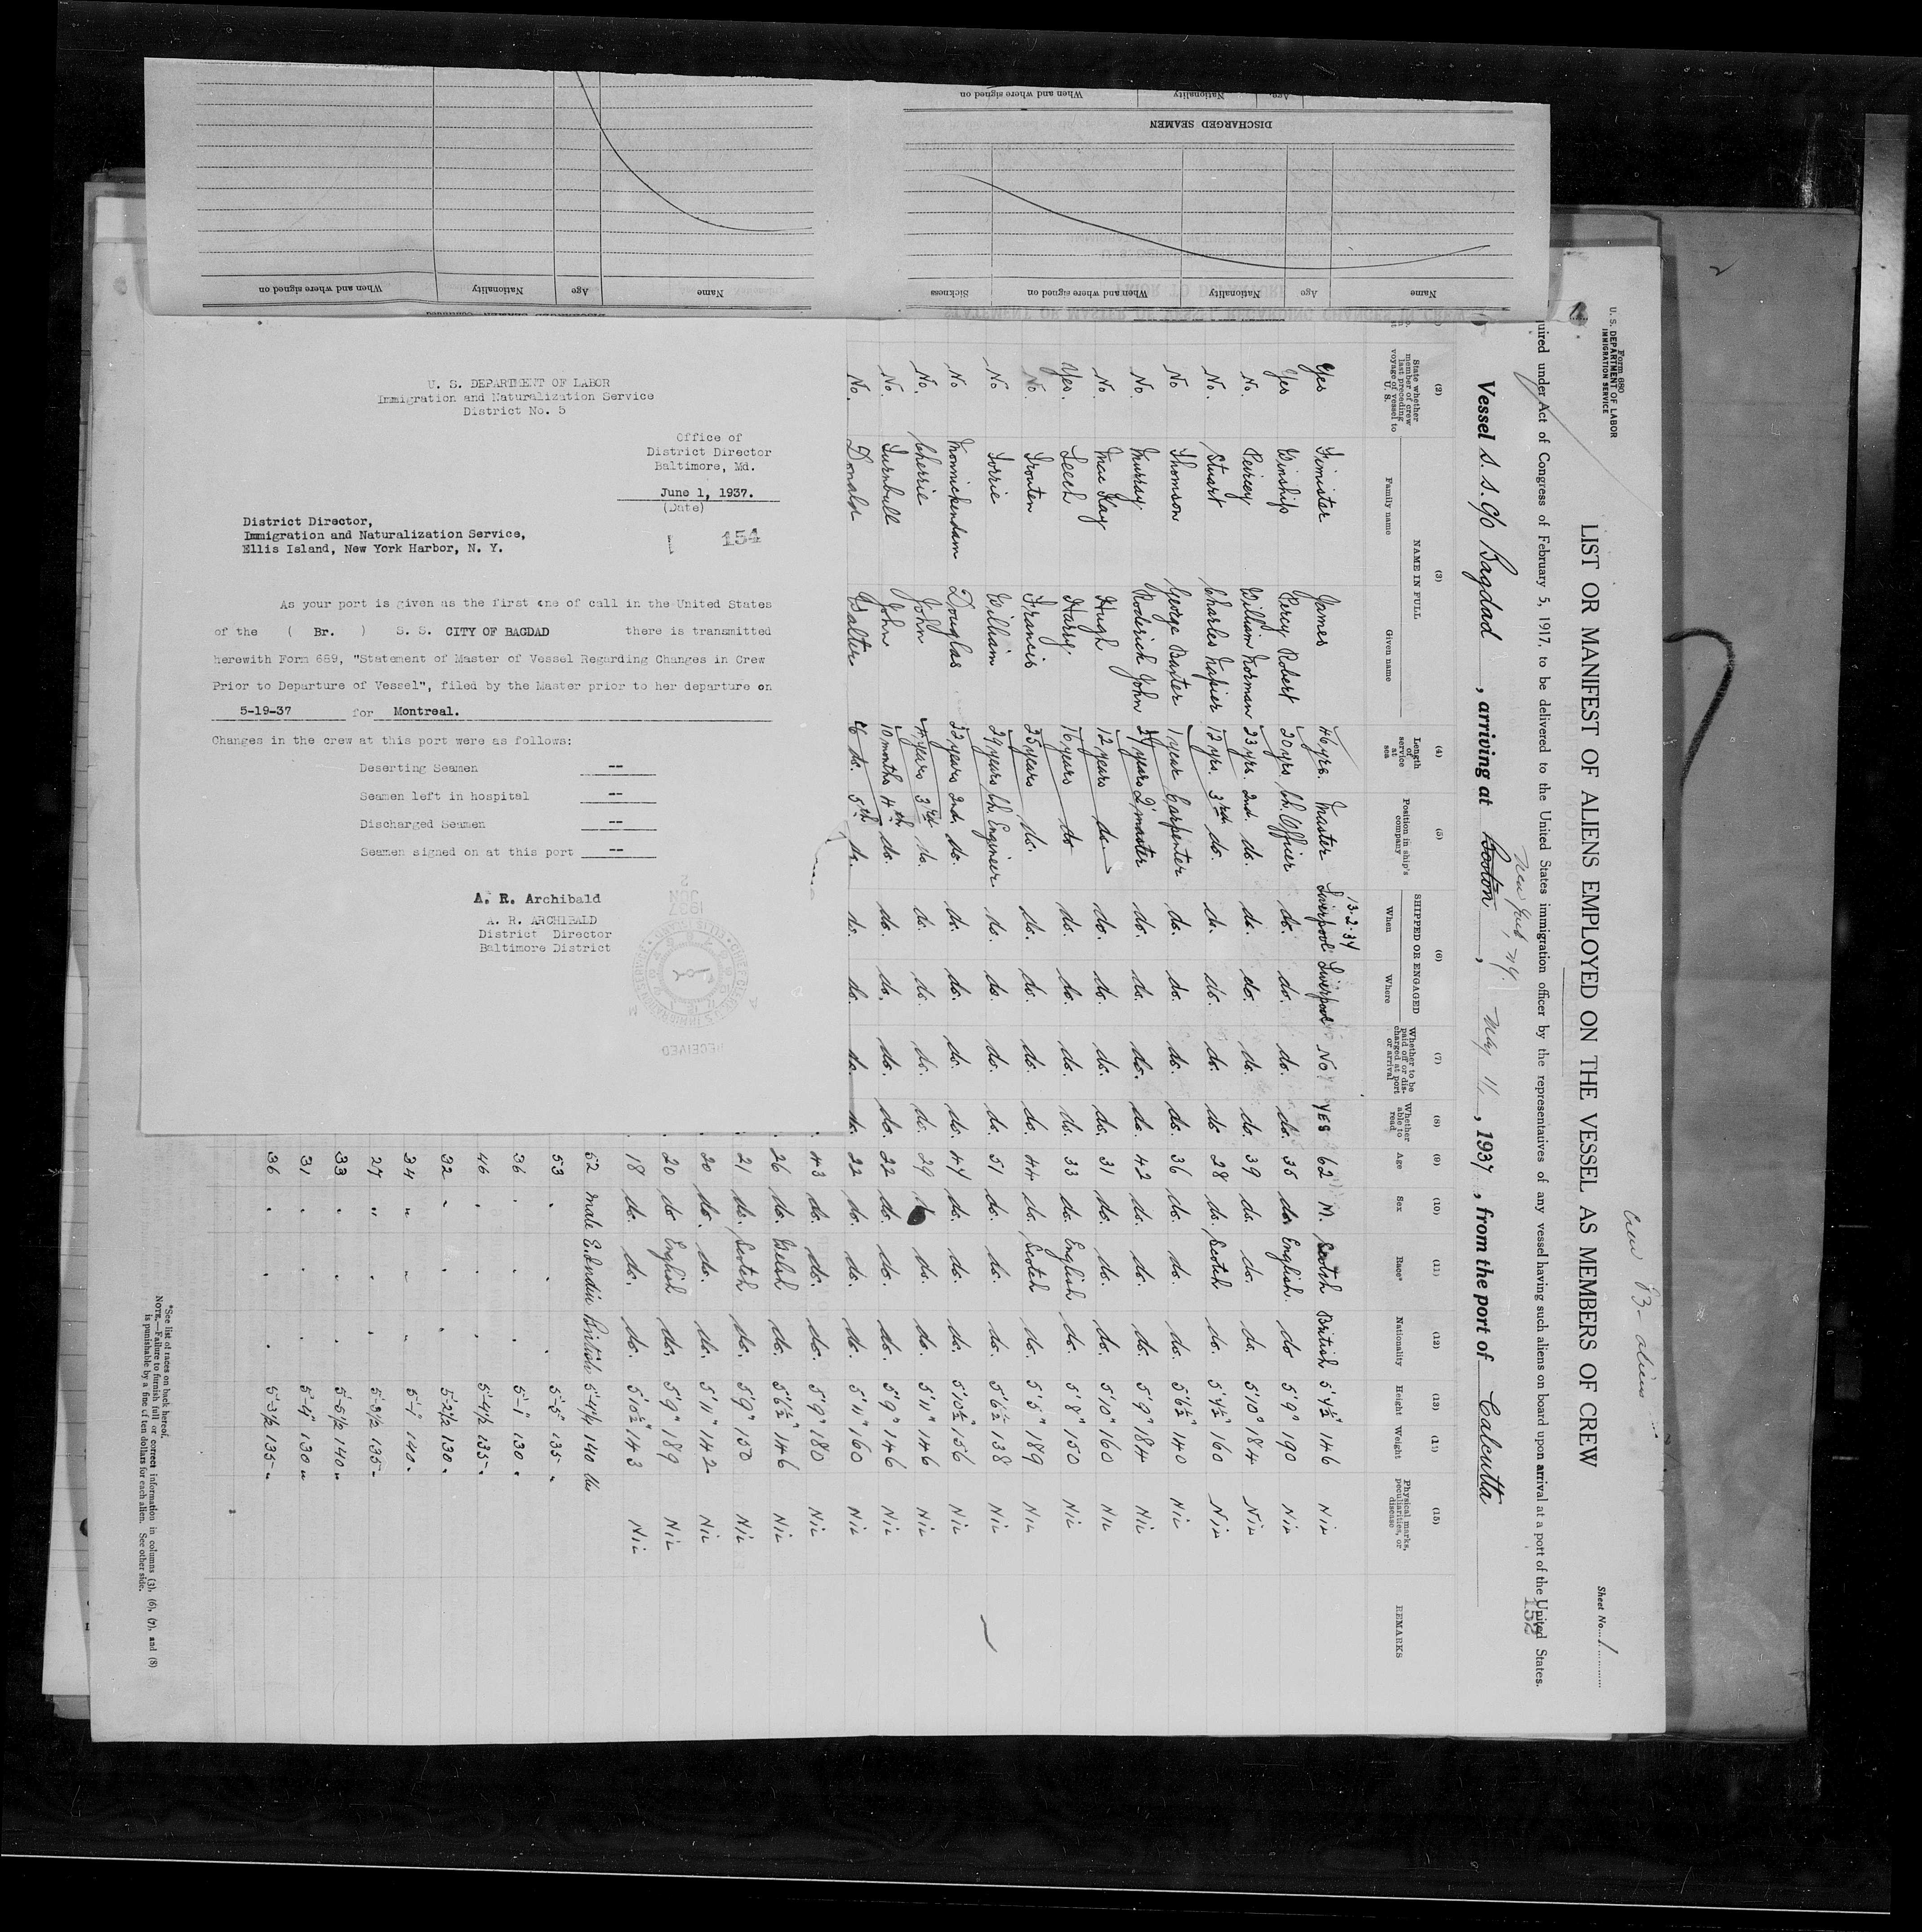 DISCHARGED SEAMEN
When and where signed on
Nationality
Age
Name
Name
Age
Nationality
When and where signed on
Sickness
U. S. DEPARTMENT OF LABOR
Immigration and Naturalization Service
District No. 5
Office of
District Director
Baltimore, Md.
June 1, 1937.
(Date)
District Director,
Immigration and Naturalization Service,
Ellis Island, New York Harbor, N. Y.
154
As your port is given as the first one of call in the United States
of the ( Br. ) S. S. CITY OF BAGDAD there is transmitted
herewith Form 689, "Statement of Master of Vessel Regarding Changes in Crew
Prior to Departure of Vessel", filed by the Master prior to her departure on
5-19-37 for Montreal.
Changes in the crew at this port were as follows:
Deserting Seamen --
Seamen left in hospital --
Discharged Seamen --
Seamen signed on at this port --
A. R. Archibald
A. R. ARCHIBALD
District Director
Baltimore District
RECEIVED
Form 680
U. S. DEPARTMENT OF LABOR
IMMIGRATION SERVICE
Crew 83 - aliens
Sheet No. 1
LIST OR MANIFEST OF ALIENS EMPLOYED ON THE VESSEL AS MEMBERS OF CREW
uired under Act of Congress of February 5, 1917, to be delivered to the United States immigration officer by the representatives of any vessel having such aliens on board upon arrival at a port of the United States.
New York, N.Y.
Vessel S. S. C/o Bagdad, arriving at Boston, May 11, 1937, from the port of Calcutta
(2) (3) (4) (5) (6) (7) (8) (9) (10) (11) (12) (13) (14) (15)
State whether member of crew last preceding voyage of vessel to U. S.
NAME IN FULL
Family name
Given name
Length of service at sea
Position in ship's company
SHIPPED OR ENGAGED
When
Where
Whether to be paid off or discharged at port or arrival
Whether able to read
Age
Sex
Race*
Nationality
Height
Weight
Physical marks, peculiarities, or disease
REMARKS
13-2-37
Yes Simister James 46 yrs. Master Liverpool Liverpool No YES 62 M. Scotch British 5'4½" 146 Nil
Yes Winship Percy Robert 20 yrs Ch. Officer do. do. do. do. 35 do English do 5'9" 190 Nil
No. Peircy William Norman 23 yrs. 2nd. do. do. do. do. do. 39 do. do. do. 5'10" 184 Nil
No. Stuart Charles Napier 12 yrs. 3rd do. do. do. do. do 28 do. Scotch do. 5'4½" 160 Nil
No Thomson George Baxter 1 year Carpenter do. do. do. do. 36 do. do. do. 5'6½" 140 Nil
No. Murray Roderick John 27 years 2/master do. do. do. do. 42 do. do. do. 5'9" 184 Nil
No Mac Kay Hugh 12 years do do. do. do. do. 31 do. do. do. 5'10" 160 Nil
Yes. Leech Harry 16 years do do. do. do. do. 33 do. English do. 5'8" 150 Nil
No. Trouten Francis 25 years do. do. do. do. do. 44 do. Scotch do. 5'5" 189 Nil
No Torrie William 29 years Ch. Engineer do. do. do. do. 51 do. do. do. 5'6½" 138 Nil
No Monnickendam Douglas 22 years 2nd. do. do. do. do. do. 47 do. do. do. 5'10½" 156 Nil
No. Cherrie John 4 years 3rd do. do. do. do. do. 29 do. do. 5'11" 146 Nil
No. Turnbull John 10 months 4th do. do. do. do. do. 22 do. do. do. 5'9" 146 Nil
No. Donald Walter 5th do. do. do. do. do. 22 do. do. do. 5'11" 160 Nil
43 do. do. do. 5'9" 180 Nil
26 do. Welsh do. 5'6½" 146 Nil
21 do. Scotch do. 5'9" 150 Nil
20 do. do. do. 5'11" 142 Nil
20 do English do. 5'9" 189 Nil
18 do. do. do. 5'10½" 143 Nil
52 male E.Indian British 5-4½ 140 lbs
53 " " " 5-5" 135 "
36 " " " 5-1" 130 "
46 " " " 5-4½ 135 "
32 " " " 5-2½ 130 "
34 " " " 5-1" 140 "
27 " " " 5-3½ 135 "
33 " " " 5-5½ 140 "
31 " " " 5-4" 130 "
36 " " " 5-3½ 135 "
*See list of races on back hereof.
NOTE.—Failure to furnish full or correct information in columns (3), (6), (7), and (8)
is punishable by a fine of ten dollars for each alien. See other side.